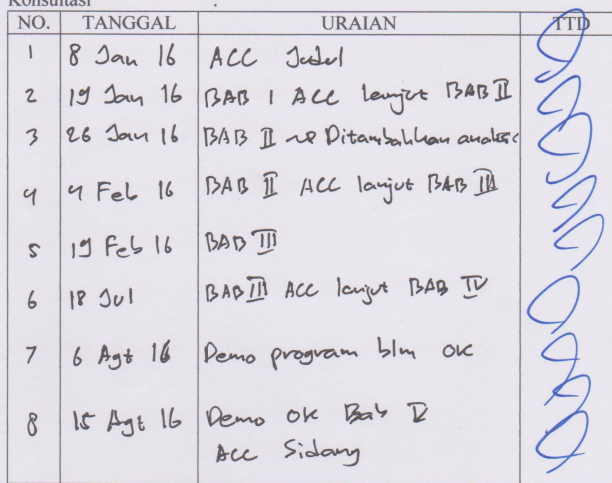 Konsultasi :
NO. TANGGAL URAIAN TTD
1 8 Jan 16 ACC Judul
2 19 Jan 16 BAB I ACC lanjut BAB II
3 26 Jan 16 BAB II Ditambahkan analisis
4 4 Feb 16 BAB II ACC lanjut BAB III
5 19 Feb 16 BAB III
6 18 Jul BAB III ACC lanjut BAB IV
7 6 Agt 16 Demo program blm OK
8 15 Agt 16 Demo OK Bab V
ACC Sidang